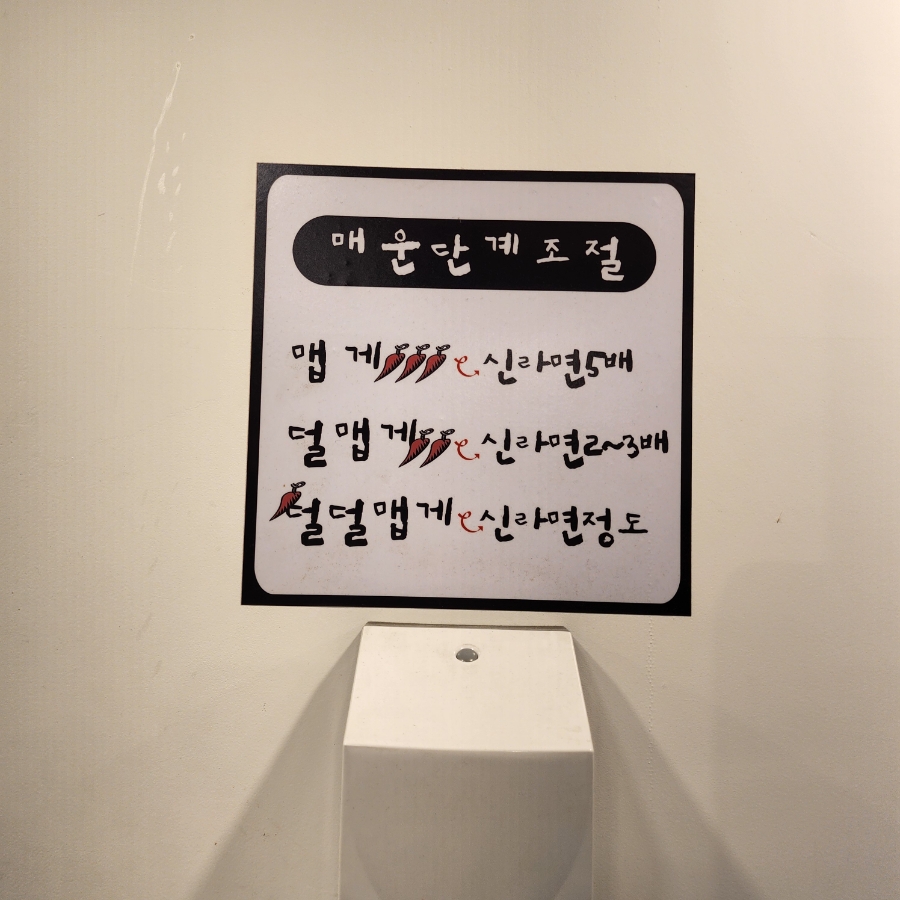 매운단계조절
맵게 신라면5배
덜맵게 신라면2~3배
덜덜맵게 신라면정도